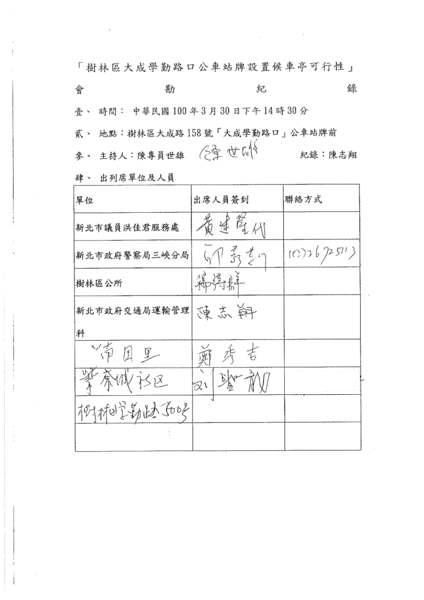 「樹林區大成學勤路口公車站牌設置候車亭可行性」
會勘紀錄
壹、 時間： 中華民國100年3月30日下午14時30分
貳、 地點：樹林區大成路158號「大成學勤路口」公車站牌前
參、 主持人：陳專員世雄 陳世雄 紀錄：陳志翔
肆、 出列席單位及人員
單位 出席人員簽到 聯絡方式
新北市議員洪佳君服務處 黃建隆代
新北市政府警察局三峽分局
樹林區公所
新北市政府交通局運輸管理科 陳志翔
南園里 鄭秀吉
社區
樹林學勤路500號